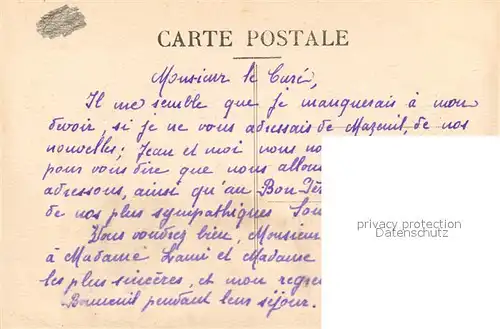 CARTE POSTALE
Monsieur le Curé,
Il me semble que je manquerais à mon
devoir, si je ne vous adressais de Mazeuil, de nos
nouvelles; Jean et moi nous no
pour vous dire que nous allon
adressons, ainsi qu'au Bon Pèr
de nos plus sympathiques Sou
privacy protection
Datenschutz
Vous voudrez bien, Monsieur
à Madame Lami et Madame
les plus sincères, et mon regre
Bonneuil pendant leur séjour.